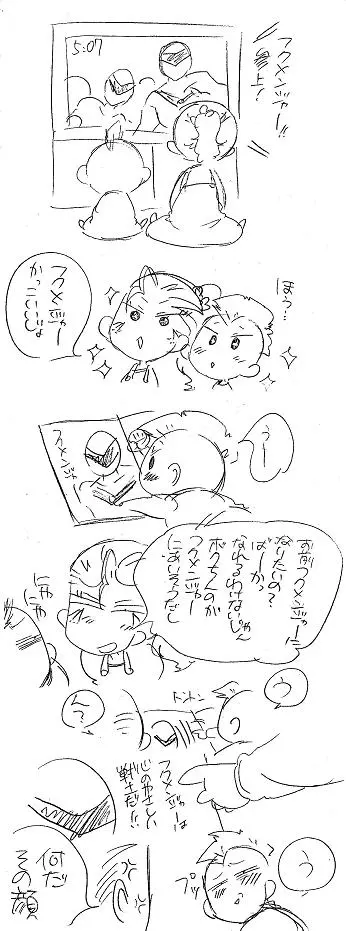 フクメンジャー!!
参上!
5:07
ほう…
フクメンジャー
かっこいいじょ
うー
フクメンジャー
お前フクメンジャーに
なりたいの?
ばーかっ
なれるわけないじゃん
ボクちんのが
フクメンジャー
にあいそうだし
にやにや
う
トントン
ん?
フクメンジャーは
心のやさしい
戦士だ!!
う
プッ
何だ
その顔